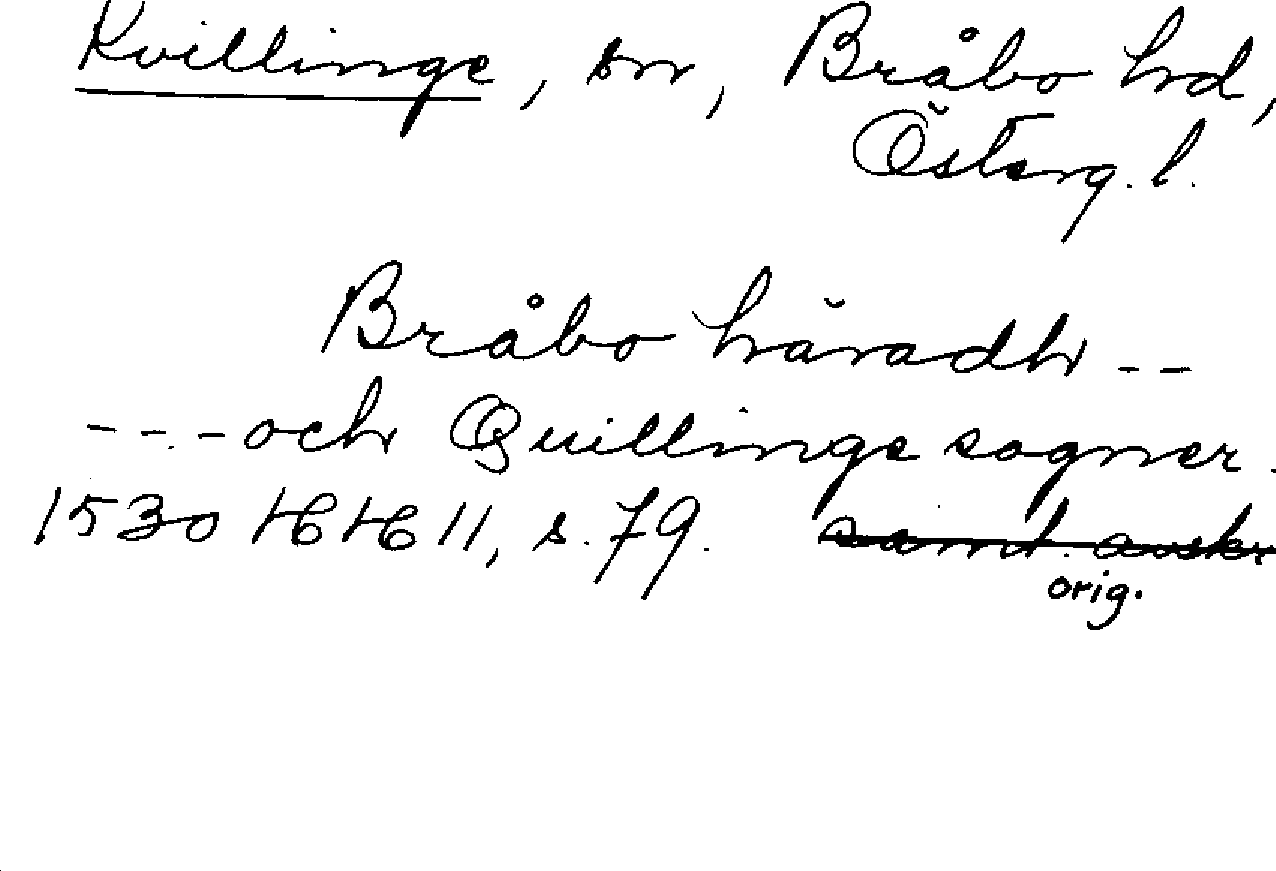 Kvillinge, sn, Bråbo hd,
Österg. l.
Bråbo häradh --
---- och Quillinge sogner.
1530 HH 11, s. 79. samt. avskr
orig.